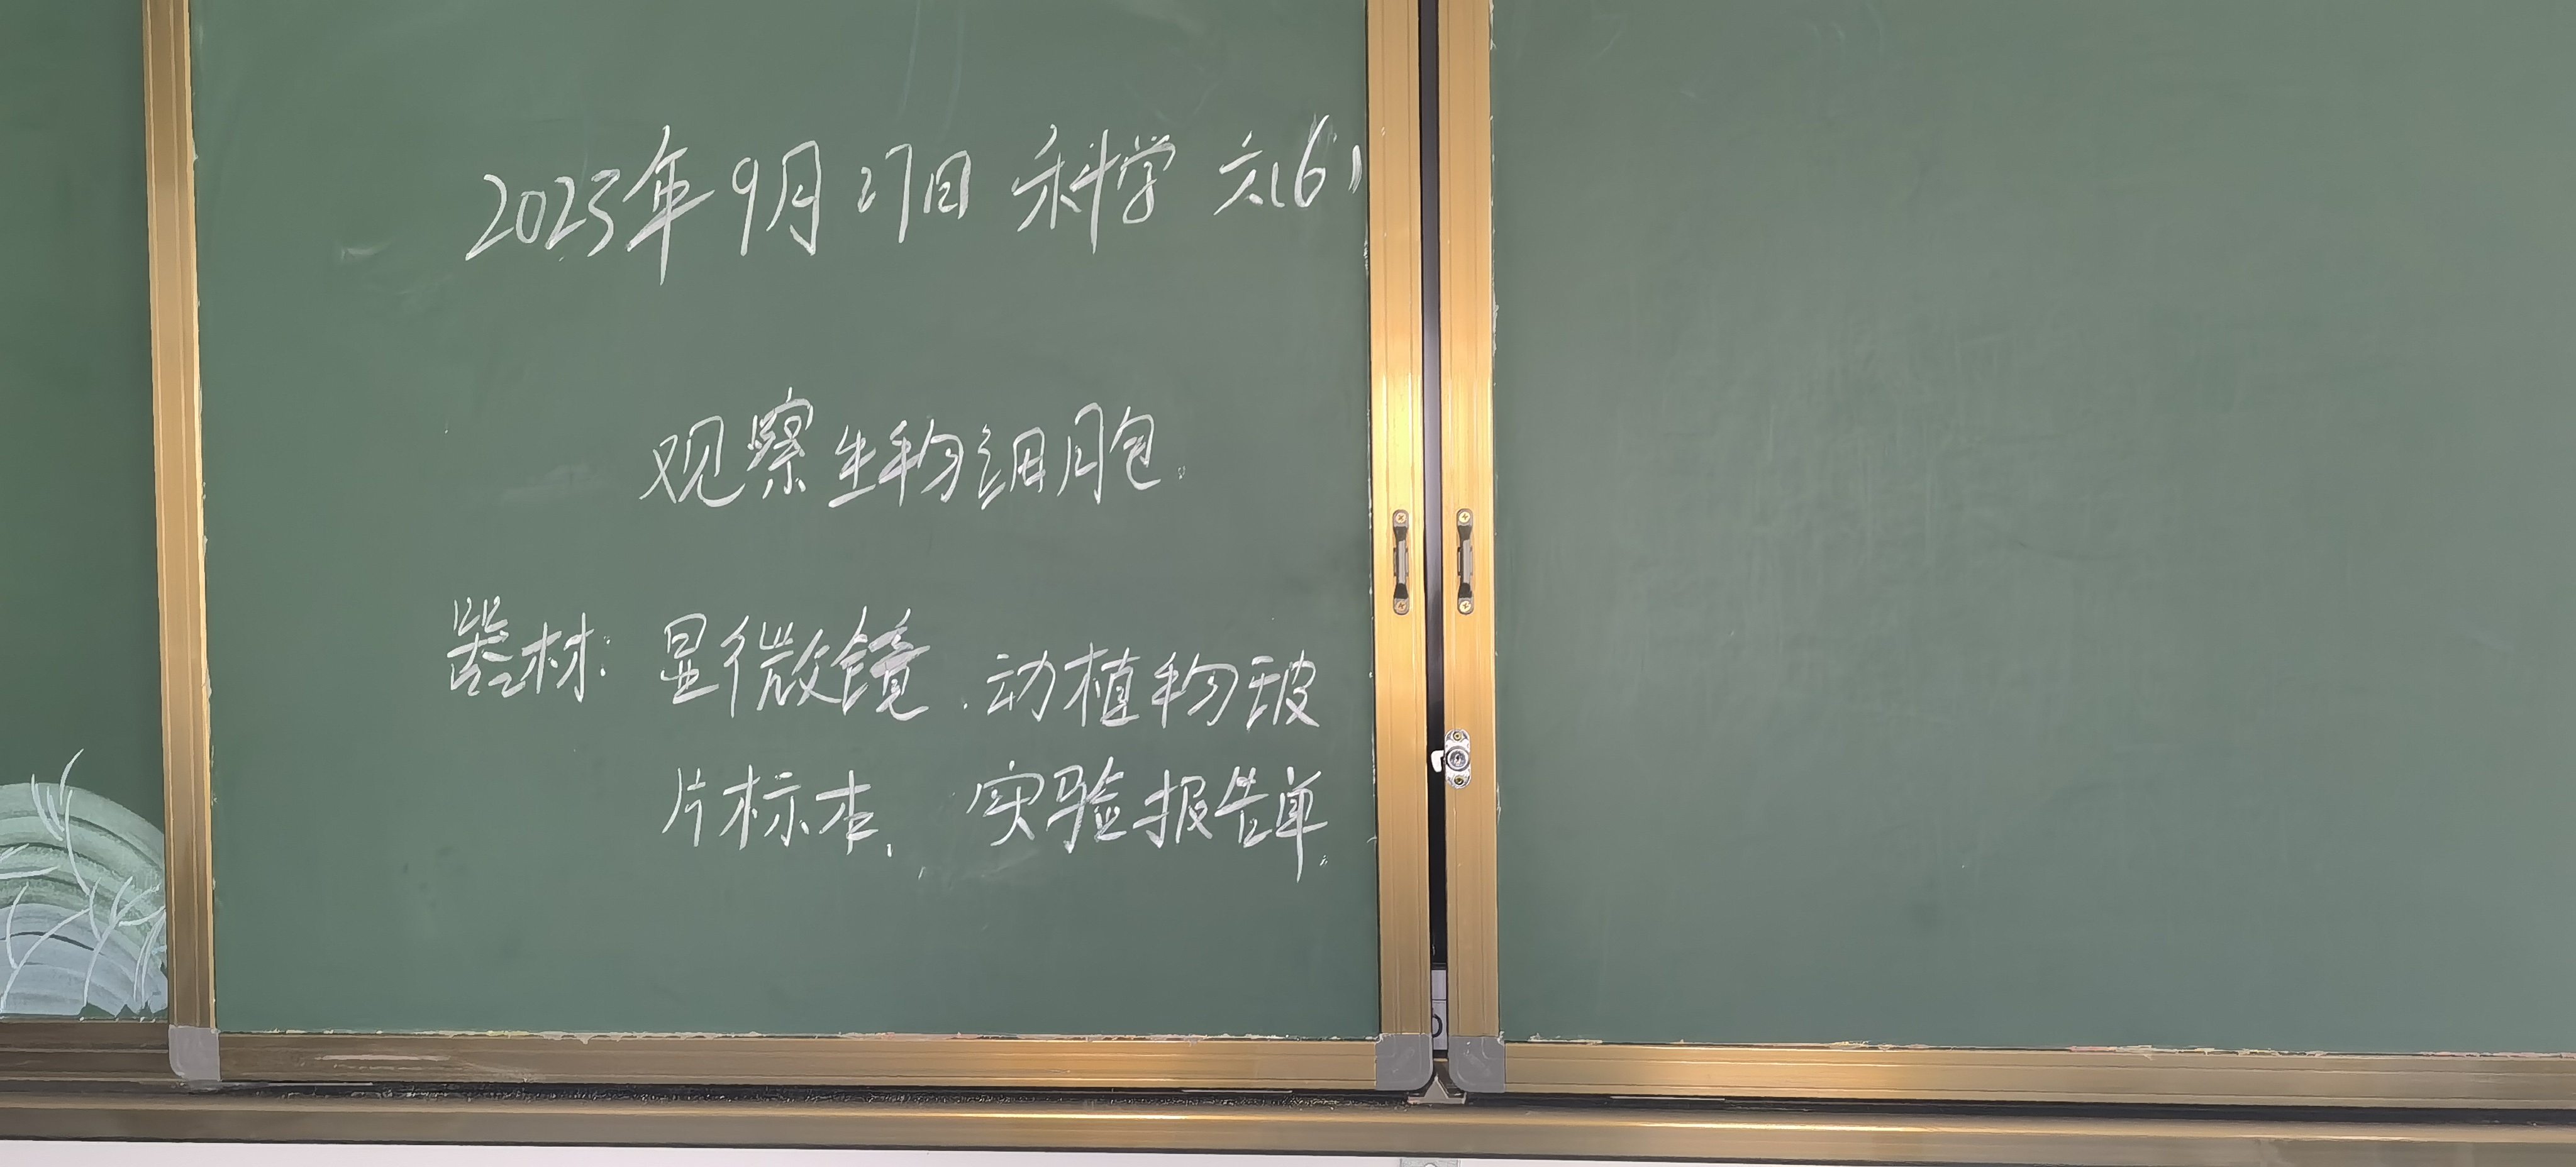 2023年9月27日 科学 六(6)
观察生物细胞.
器材: 显微镜、动植物玻
片标本、实验报告单.